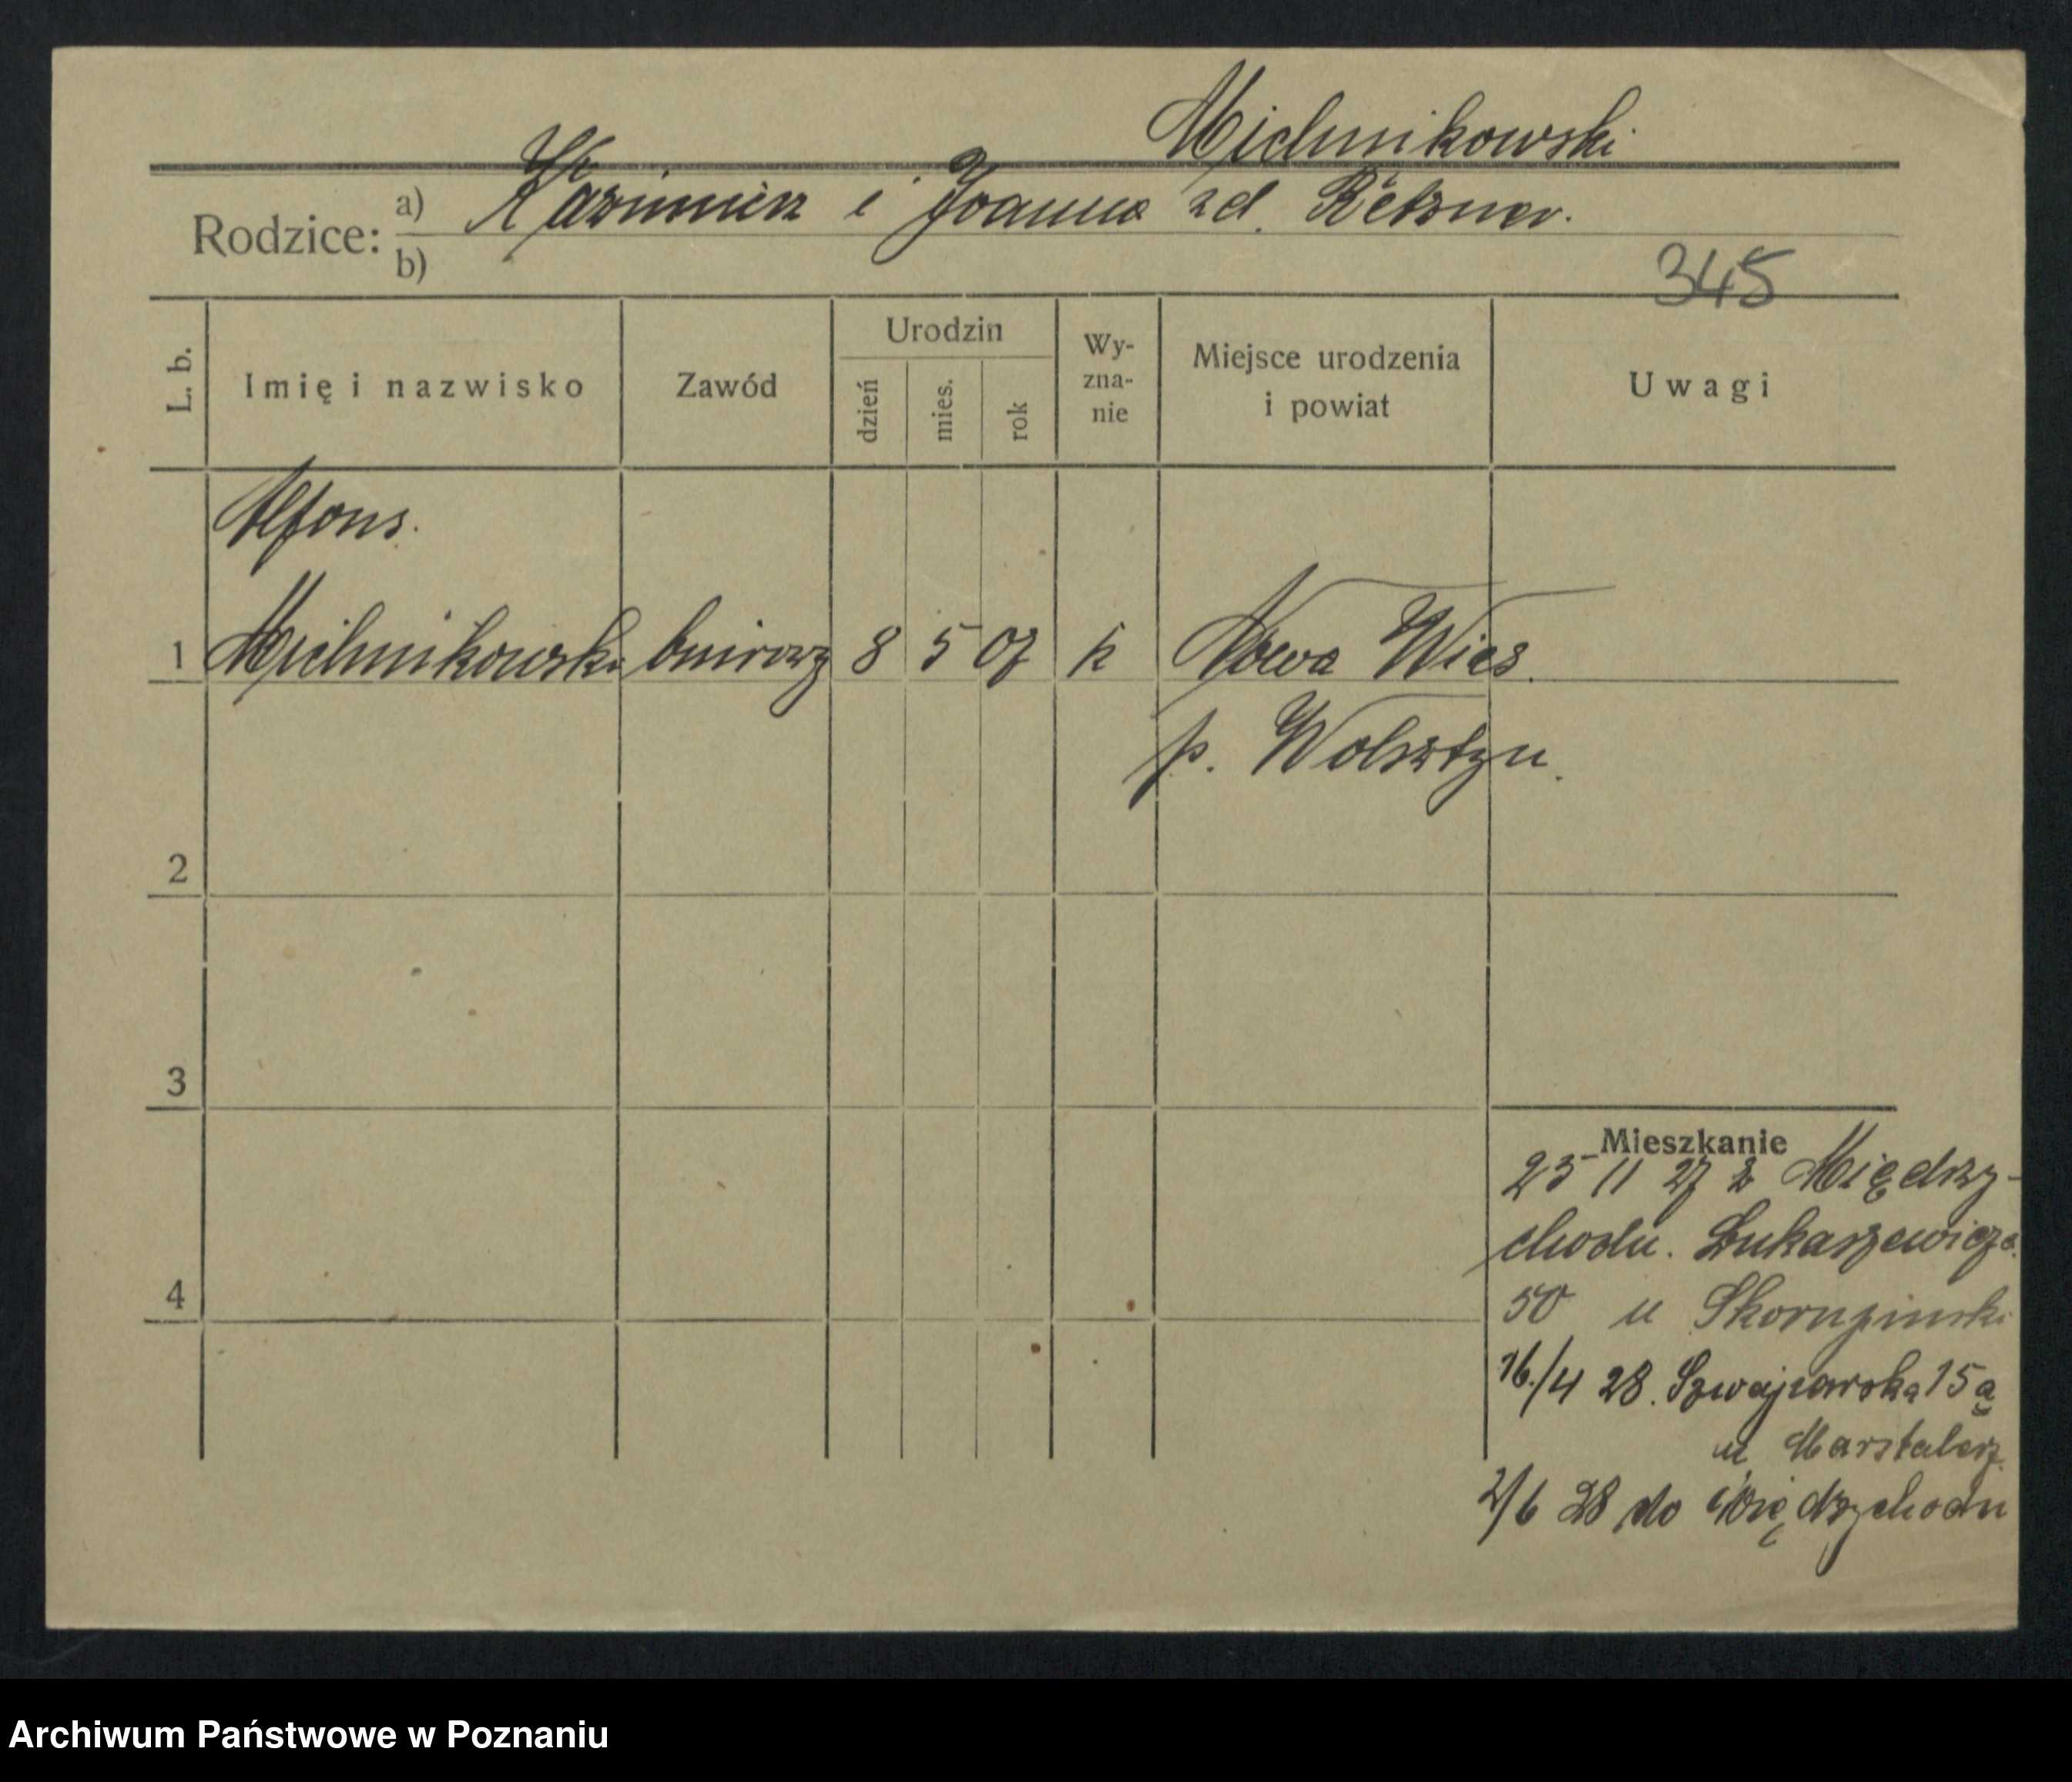 Michnikowski
Rodzice: a) Kazimierz i Joanna zd. Retzner.
b)
345
L. b.
Imię i nazwisko
Zawód
Urodzin
dzień
mies.
rok
Wy-
zna-
nie
Miejsce urodzenia
i powiat
Uwagi
Alfons.
1 Michnikowski biurowy 8 5 07 k Nowa Wies.
p. Wolsztyn.
2
3
4
Mieszkanie
25 11 27 z Między-
chodu. Łukaszewicza
50 u Skorupinski
16/4 28. Szwajcarska 15a
u Marstalerz
2/6 28 do Międzychodu
Archiwum Państwowe w Poznaniu